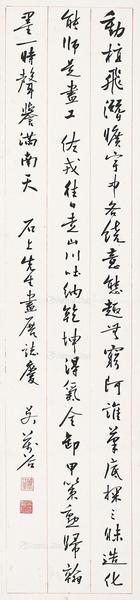 動植飛潛曠宇中各饒意態趣無窮阿誰筆底探三昧造化
能師是畫工佐戎往日走山川吐納乾坤得氣全卸甲策勳歸翰
墨一時聲譽滿南天 石上先生畫展誌慶 吳萬谷